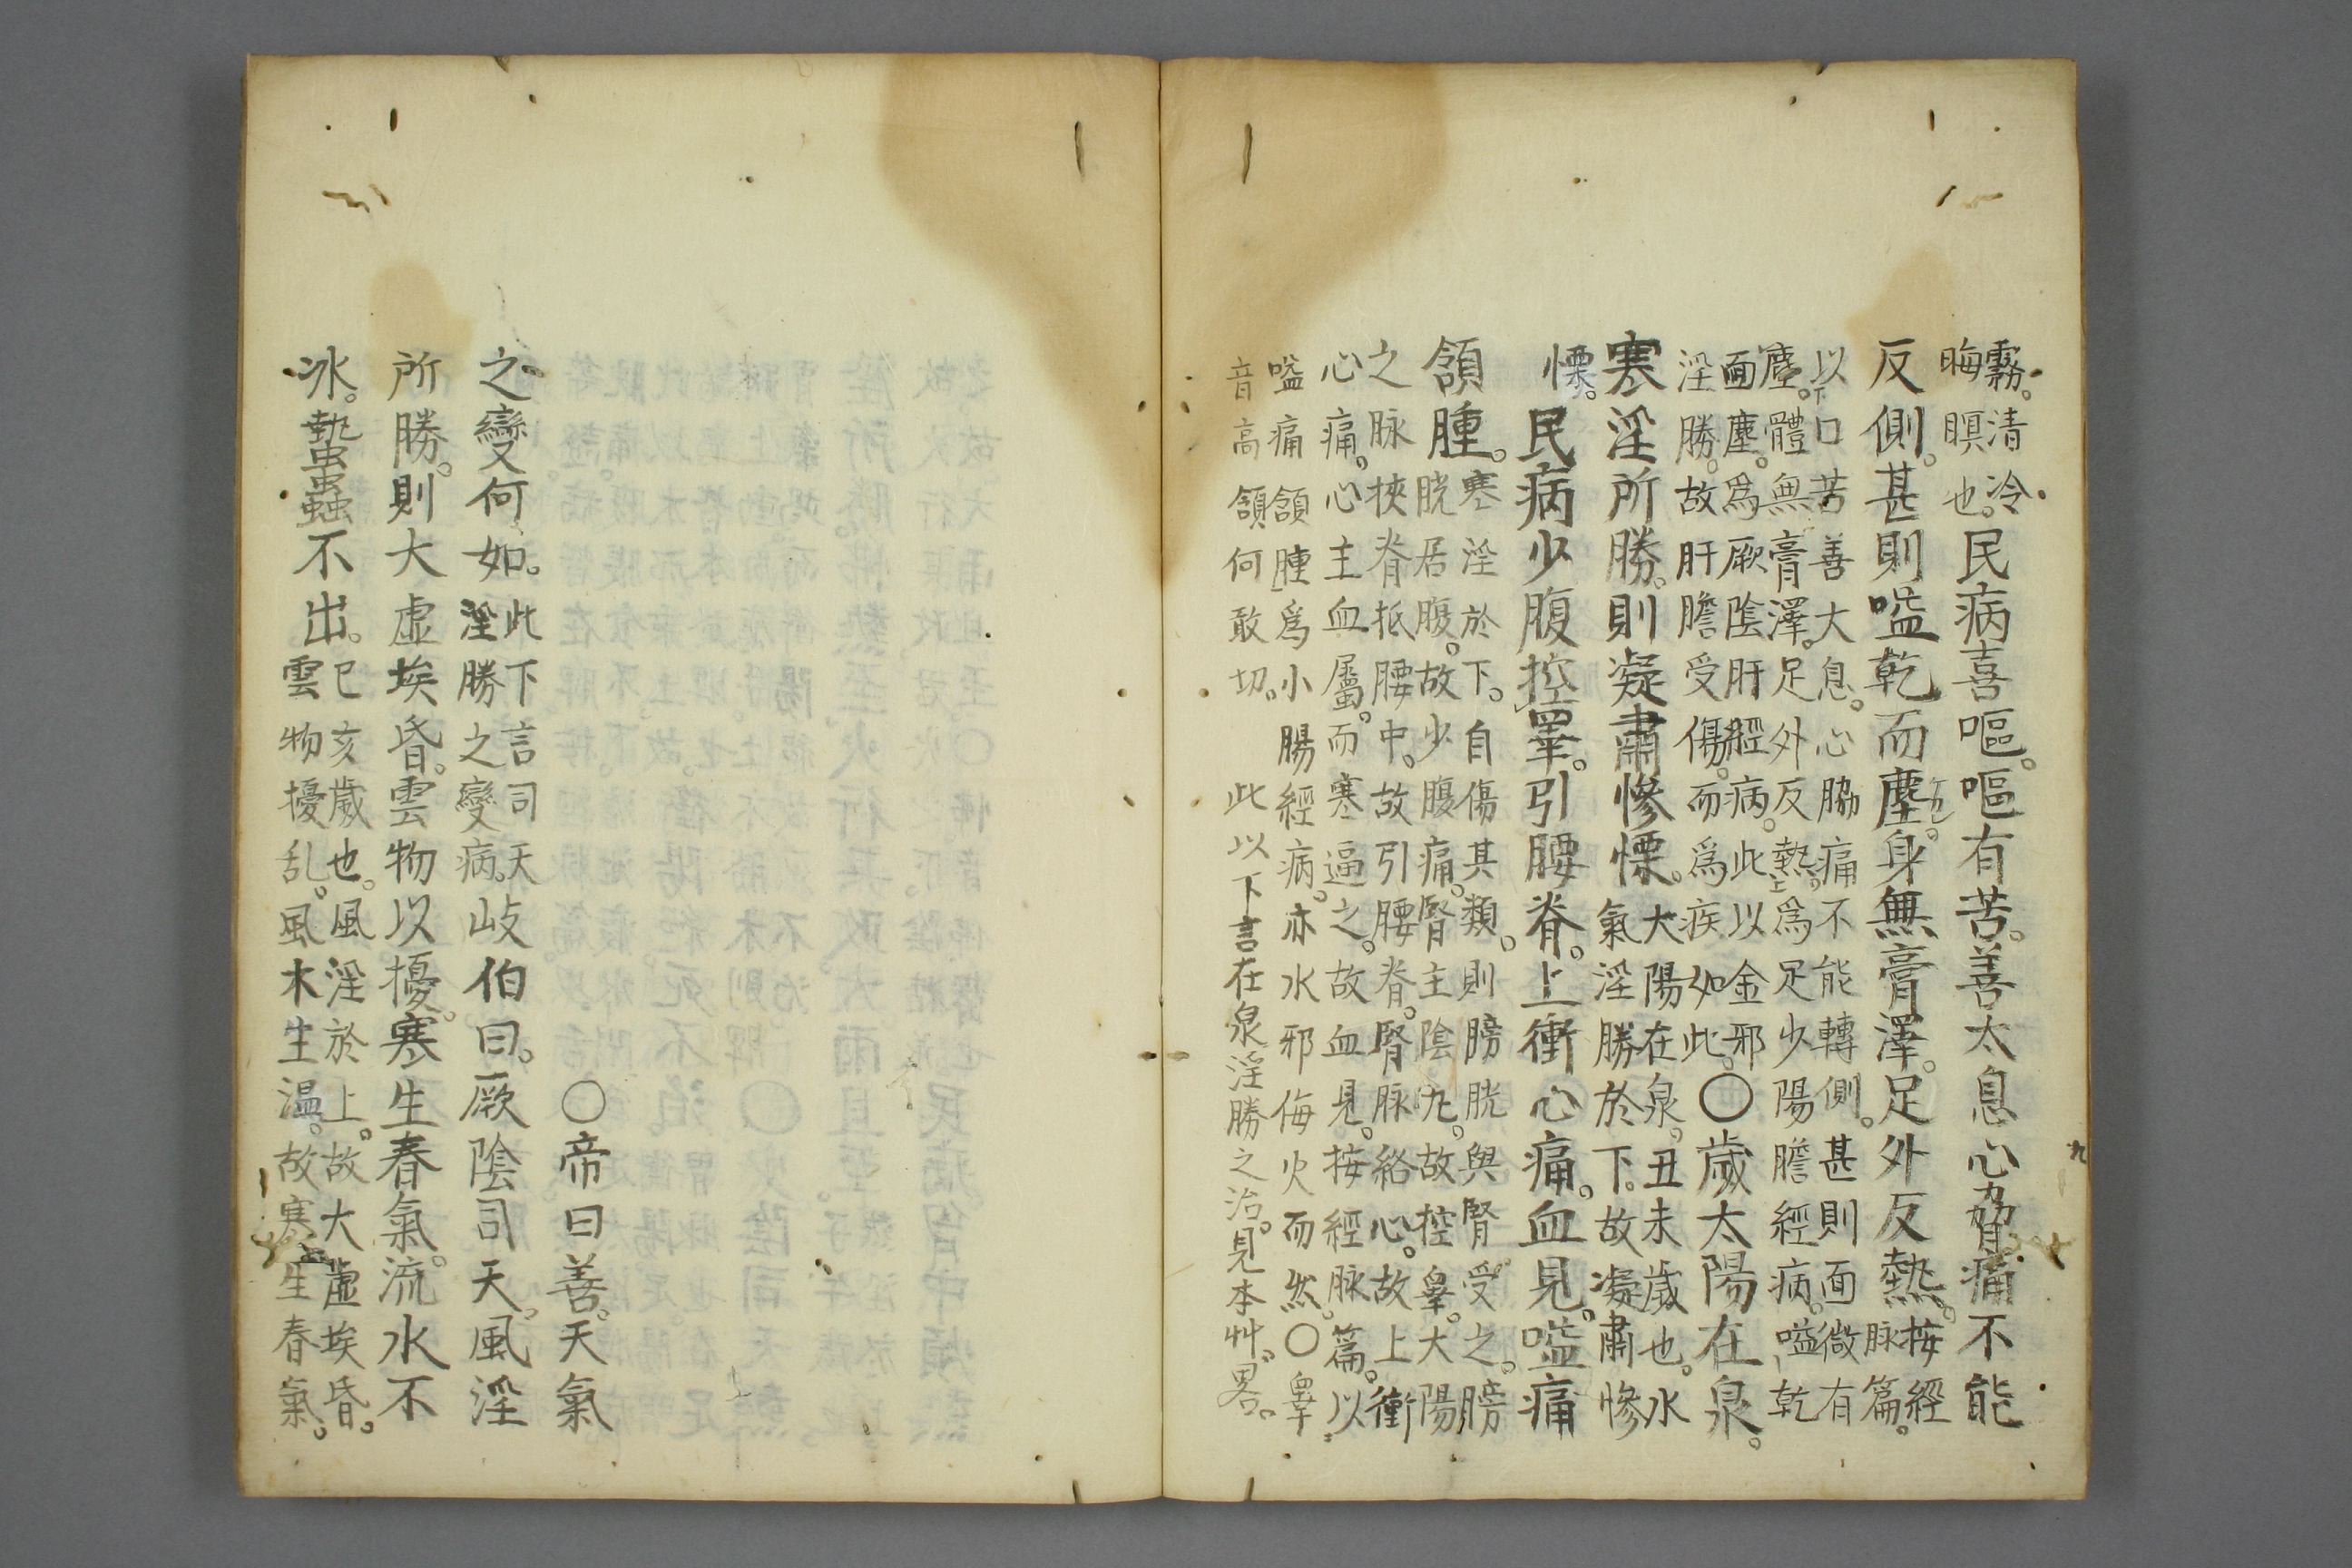 霧。清冷
晦瞑也。民病喜嘔。嘔有苦。善太息心脅痛不能
反側。甚則嗌乾而塵。身無膏澤。足外反熱。按經
脉篇。
以下口苦善大息。心脇痛不能轉側。甚則面微有
塵。體無膏澤。足外反熱。爲足少陽膽經病。嗌乾
面塵。爲厥陰肝經病。此以金邪
淫勝。故肝膽受傷。而爲疾如此。〇歲太陽在泉。
寒淫所勝。則凝肅慘慄。大陽在泉。丑未歲也。水
氣淫勝於下。故凝肅慘
慄。民病少腹控睾。引腰脊。上衝心痛。血見。嗌痛
頷腫。寒淫於下。自傷其類。則膀胱與腎受之。膀
胱居腹。故少腹痛。腎主陰丸。故控睾。大陽
之脉挾脊抵腰中。故引腰脊。腎脉絡心。故上衝
心痛。心主血屬。而寒逼之。故血見。按經脉篇。以
嗌痛頷腫爲小腸經病。亦水邪侮火而然。〇睾
音高頷何敢切。此以下言在泉淫勝之治。見本艸。畧。
九
〇帝曰善。天氣
之變何如。此下言司天
淫勝之變病。岐伯曰。厥陰司天。風淫
所勝。則大虛埃昏。雲物以擾。寒生春氣。流水不
冰。蟄蟲不出。巳亥歲也。風淫於上。故大虛埃昏。
雲物擾乱。風木生温。故寒生春氣。